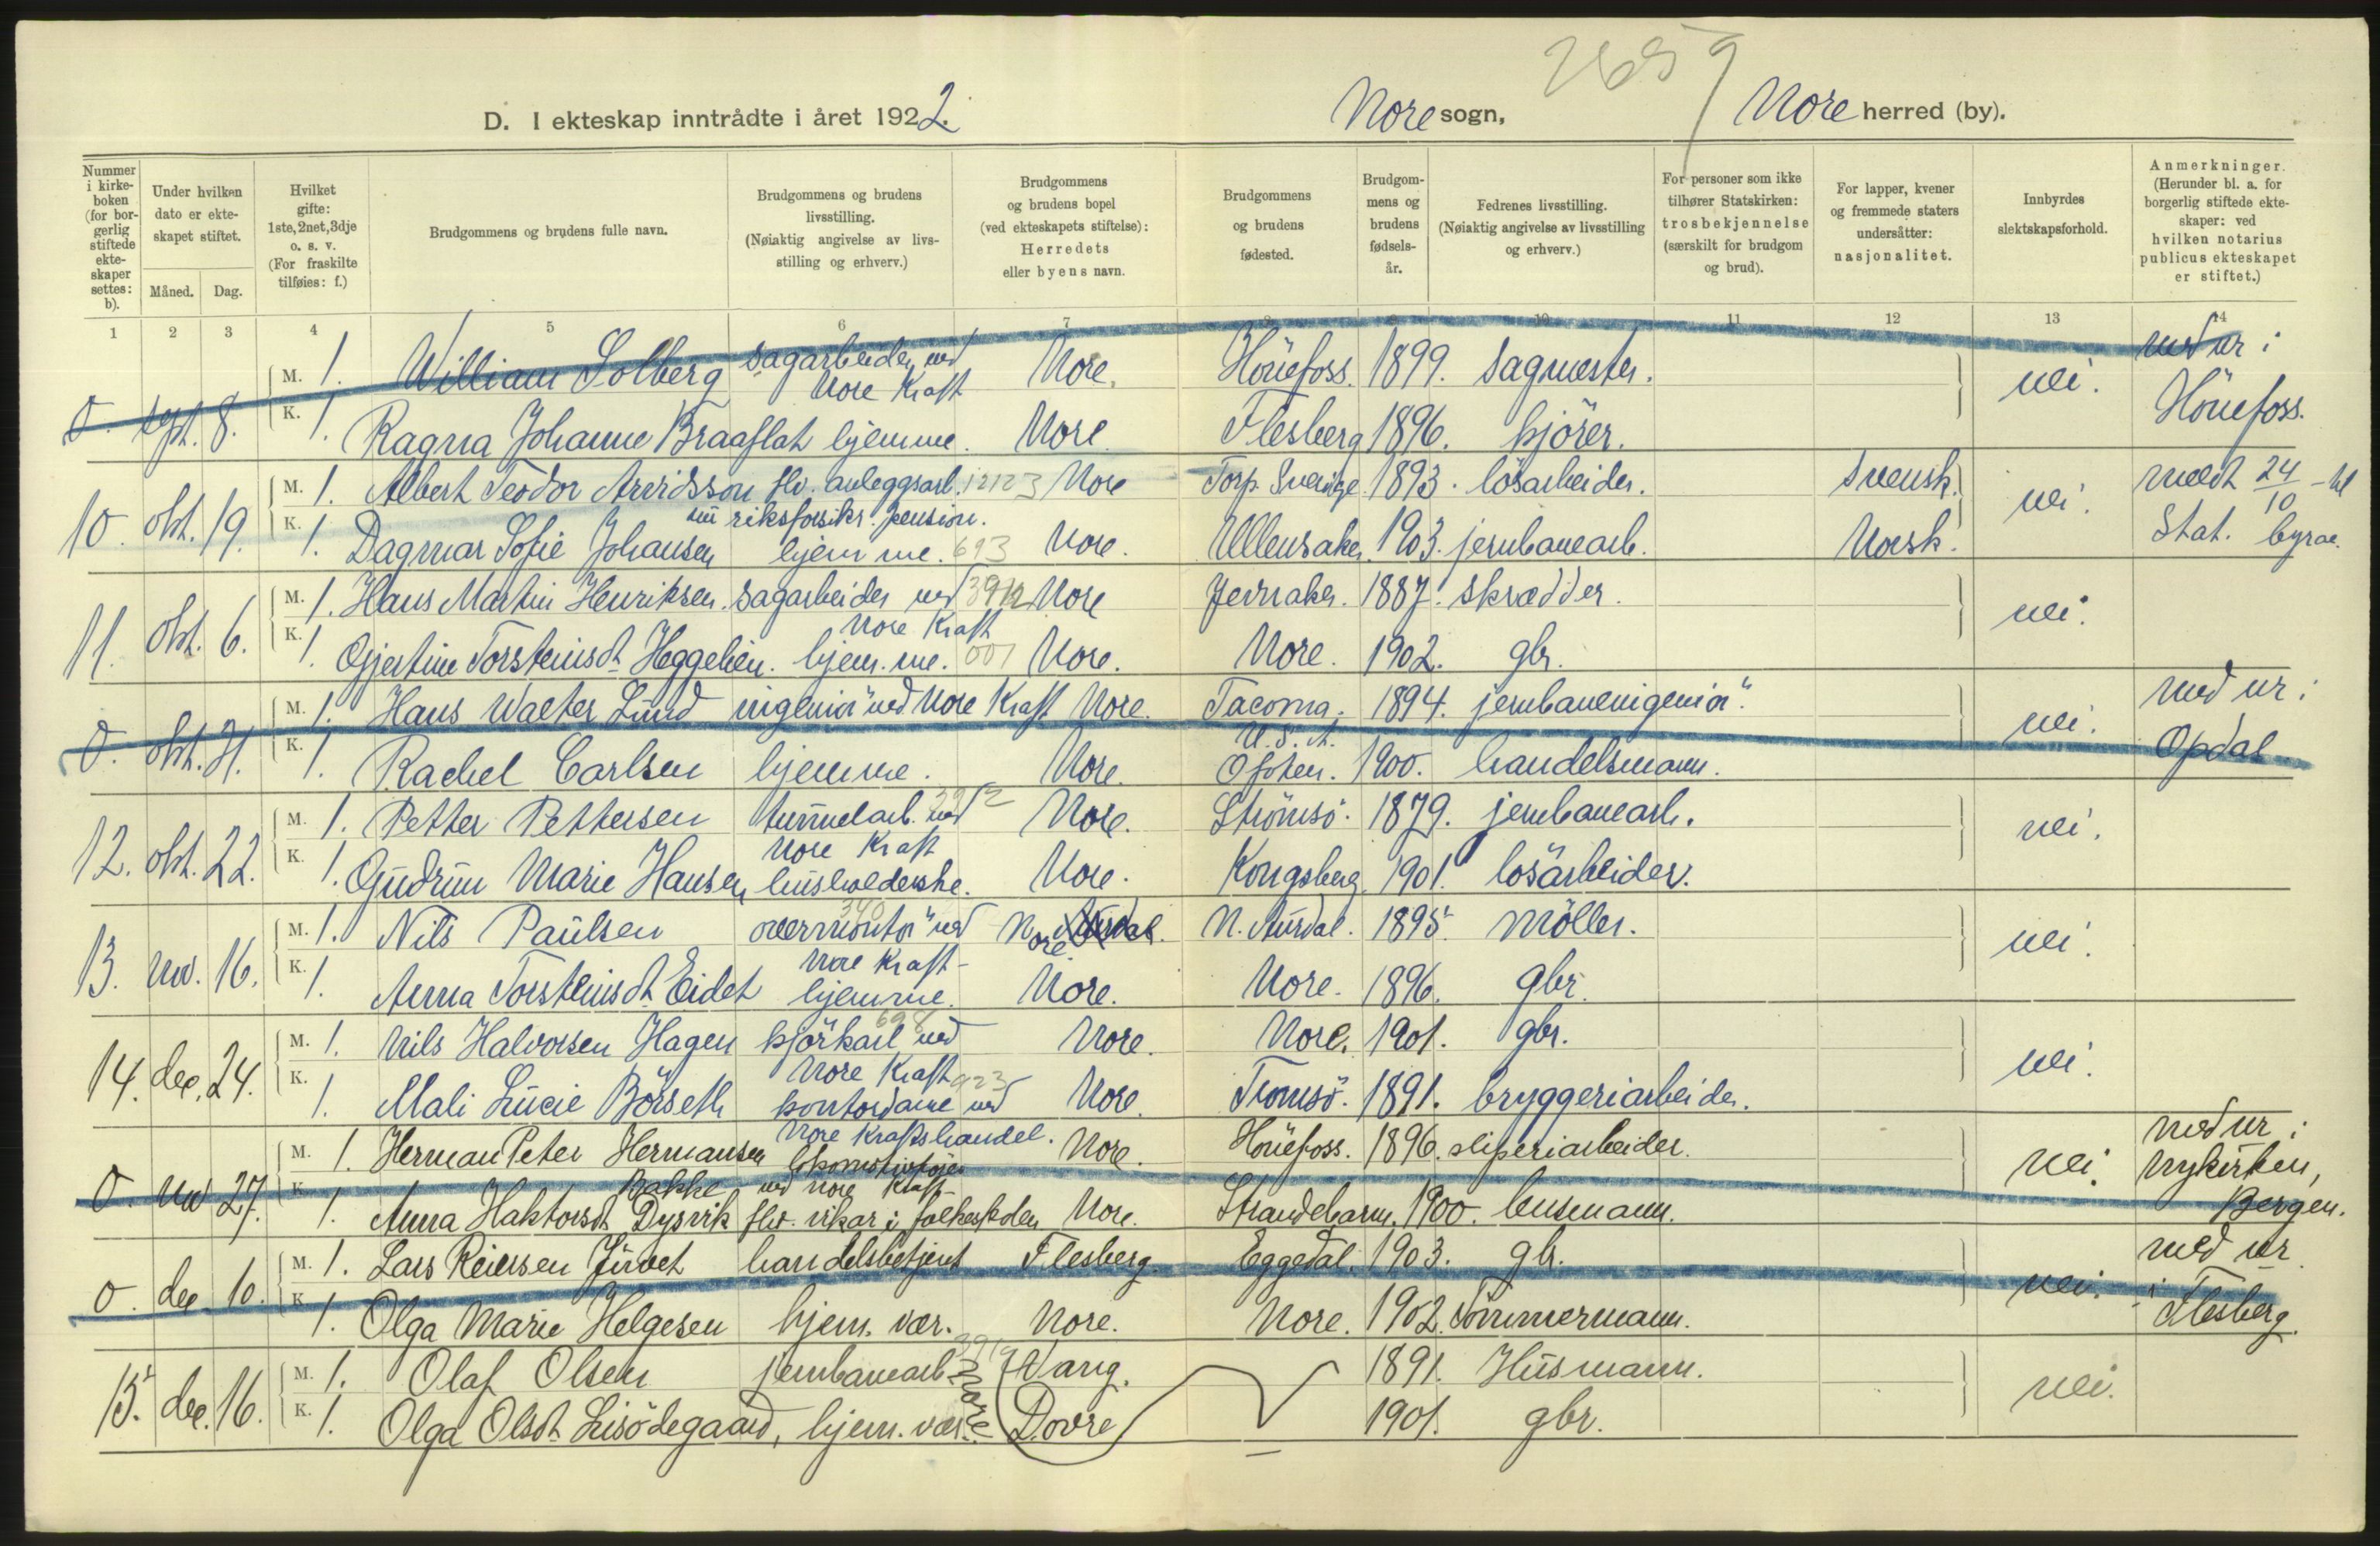 2659
D. I ekteskap inntrådte i året 1922.
Nore sogn, Nore herred (by).
Nummer i kirke-boken (for bor-gerlig stiftede ekte-skaper settes: b).
Under hvilken dato er ekte-skapet stiftet.
Måned. Dag.
Hvilket gifte: 1ste, 2net, 3dje o. s. v. (For fraskilte tilføies: f.)
Brudgommens og brudens fulle navn.
Brudgommens og brudens livsstilling. (Nøiaktig angivelse av livs-stilling og erhverv.)
Brudgommens og brudens bopel (ved ekteskapets stiftelse): Herredets eller byens navn.
Brudgommens og brudens fødested.
Brudgom-mens og brudens fødsels-år.
Fedrenes livsstilling. (Nøiaktig angivelse av livsstilling og erhverv.)
For personer som ikke tilhører Statskirken: trosbekjennelse (særskilt for brudgom og brud).
For lapper, kvener og fremmede staters undersåtter: nasjonalitet.
Innbyrdes slektskapsforhold.
Anmerkninger. (Herunder bl. a. for borgerlig stiftede ekte-skaper: ved hvilken notarius publicus ekteskapet er stiftet.)
1 2 3 4 5 6 7 8 9 10 11 12 13 14
0. sept. 8. M. 1. William Solberg sagarbeider ved Nore Kraft Nore. Hönefoss. 1899. sagmester. nei. med ur i Hönefoss.
K. 1. Ragna Johanne Braaflat hjemme. Nore. Flesberg 1896. kjörer.
10. okt. 19. M. 1. Albert Teodor Arvidsson flv. anleggsarb. 12123 Nore Torp. Sverige 1893. lösarbeider. Svensk. nei. meldt 24/10 - til Stat. byrae.
riksforsikr. pension.
K. 1. Dagmar Sofie Johansen hjemme. 693 Nore. Ullensaker. 1903. jernbanearb. Norsk.
11. okt. 6. M. 1. Hans Martin Henriksen. sagarbeider ved Nore Kraft Nore Jevnaker. 1887. skrædder. nei.
K. 1. Gjertine Torsteinsdt. Heggelien. hjemme. 001 Nore. Nore. 1902. gbr.
0. okt. 21. M. 1. Hans Walter Lund ingeniör ved Nore Kraft Nore. Tacoma. U.S.A. 1894. jernbaneingeniör. nei. med ur i Opdal
K. 1. Rachel Carlsen hjemme. Nore. Ofoten. 1900. handelsmann.
12. okt. 22. M. 1. Petter Pettersen tunnelarb. ved Nore Kraft Nore. Strömsö. 1879. jernbanearb. nei.
K. 1. Gudrun Marie Hansen husholderske. Nore. Kongsberg 1901. lösarbeider.
13. nov. 16. M. 1. Nils Paulsen overmontör ved Nore Kraft- Nore. N. Aurdal. 1895. möller. nei.
K. 1. Anna Torsteinsdt. Eidet hjemme. Nore. Nore. 1896. gbr.
14. dec. 24. M. 1. Nils Halvorsen Hagen kjörkarl ved Nore Kraft Nore. Nore. 1901. gbr. nei.
K. 1. Mali Lucie Börseth kontordame ved Nore Kraftshandel. Nore. Tromsö. 1891. bryggeriarbeider.
0. nov. 27. M. 1. Herman Peter Hermansen Bakke ved Nore Kraft Nore. Hönefoss. 1896. sliperiarbeider. nei. med ur i Nykirken, Bergen.
K. 1. Anna Haktorsdt. Dysvik flv. vikar i folkeskolen Nore. Strandebarm. 1900. lensmann.
0. dec. 10. M. 1. Lars Reiersen Juvet handelsbetjent Flesberg. Eggedal. 1903. gbr. nei. med ur i Flesberg.
K. 1. Olga Marie Helgesen hjem. vær. Nore. Nore. 1902. Tömmermann.
15. dec. 16. M. 1. Olaf Olsen jernbanearb. Nore Vang. 1891. Husmann. nei.
K. 1. Olga Olsdt. Lisödegaard, hjem. vær. Dovre 1901. gbr.